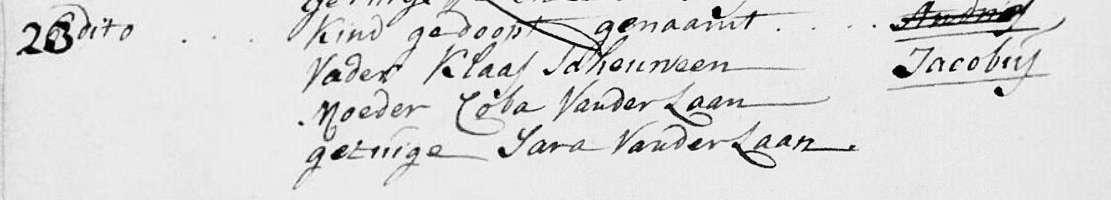 getuige
23 dito . . . Kind gedoopt genaamt . . . . Andries
Jacobus
Vader Klaas Scheurveen
Moeder Coba Vander Laan
getuige Sara Vander Laan.